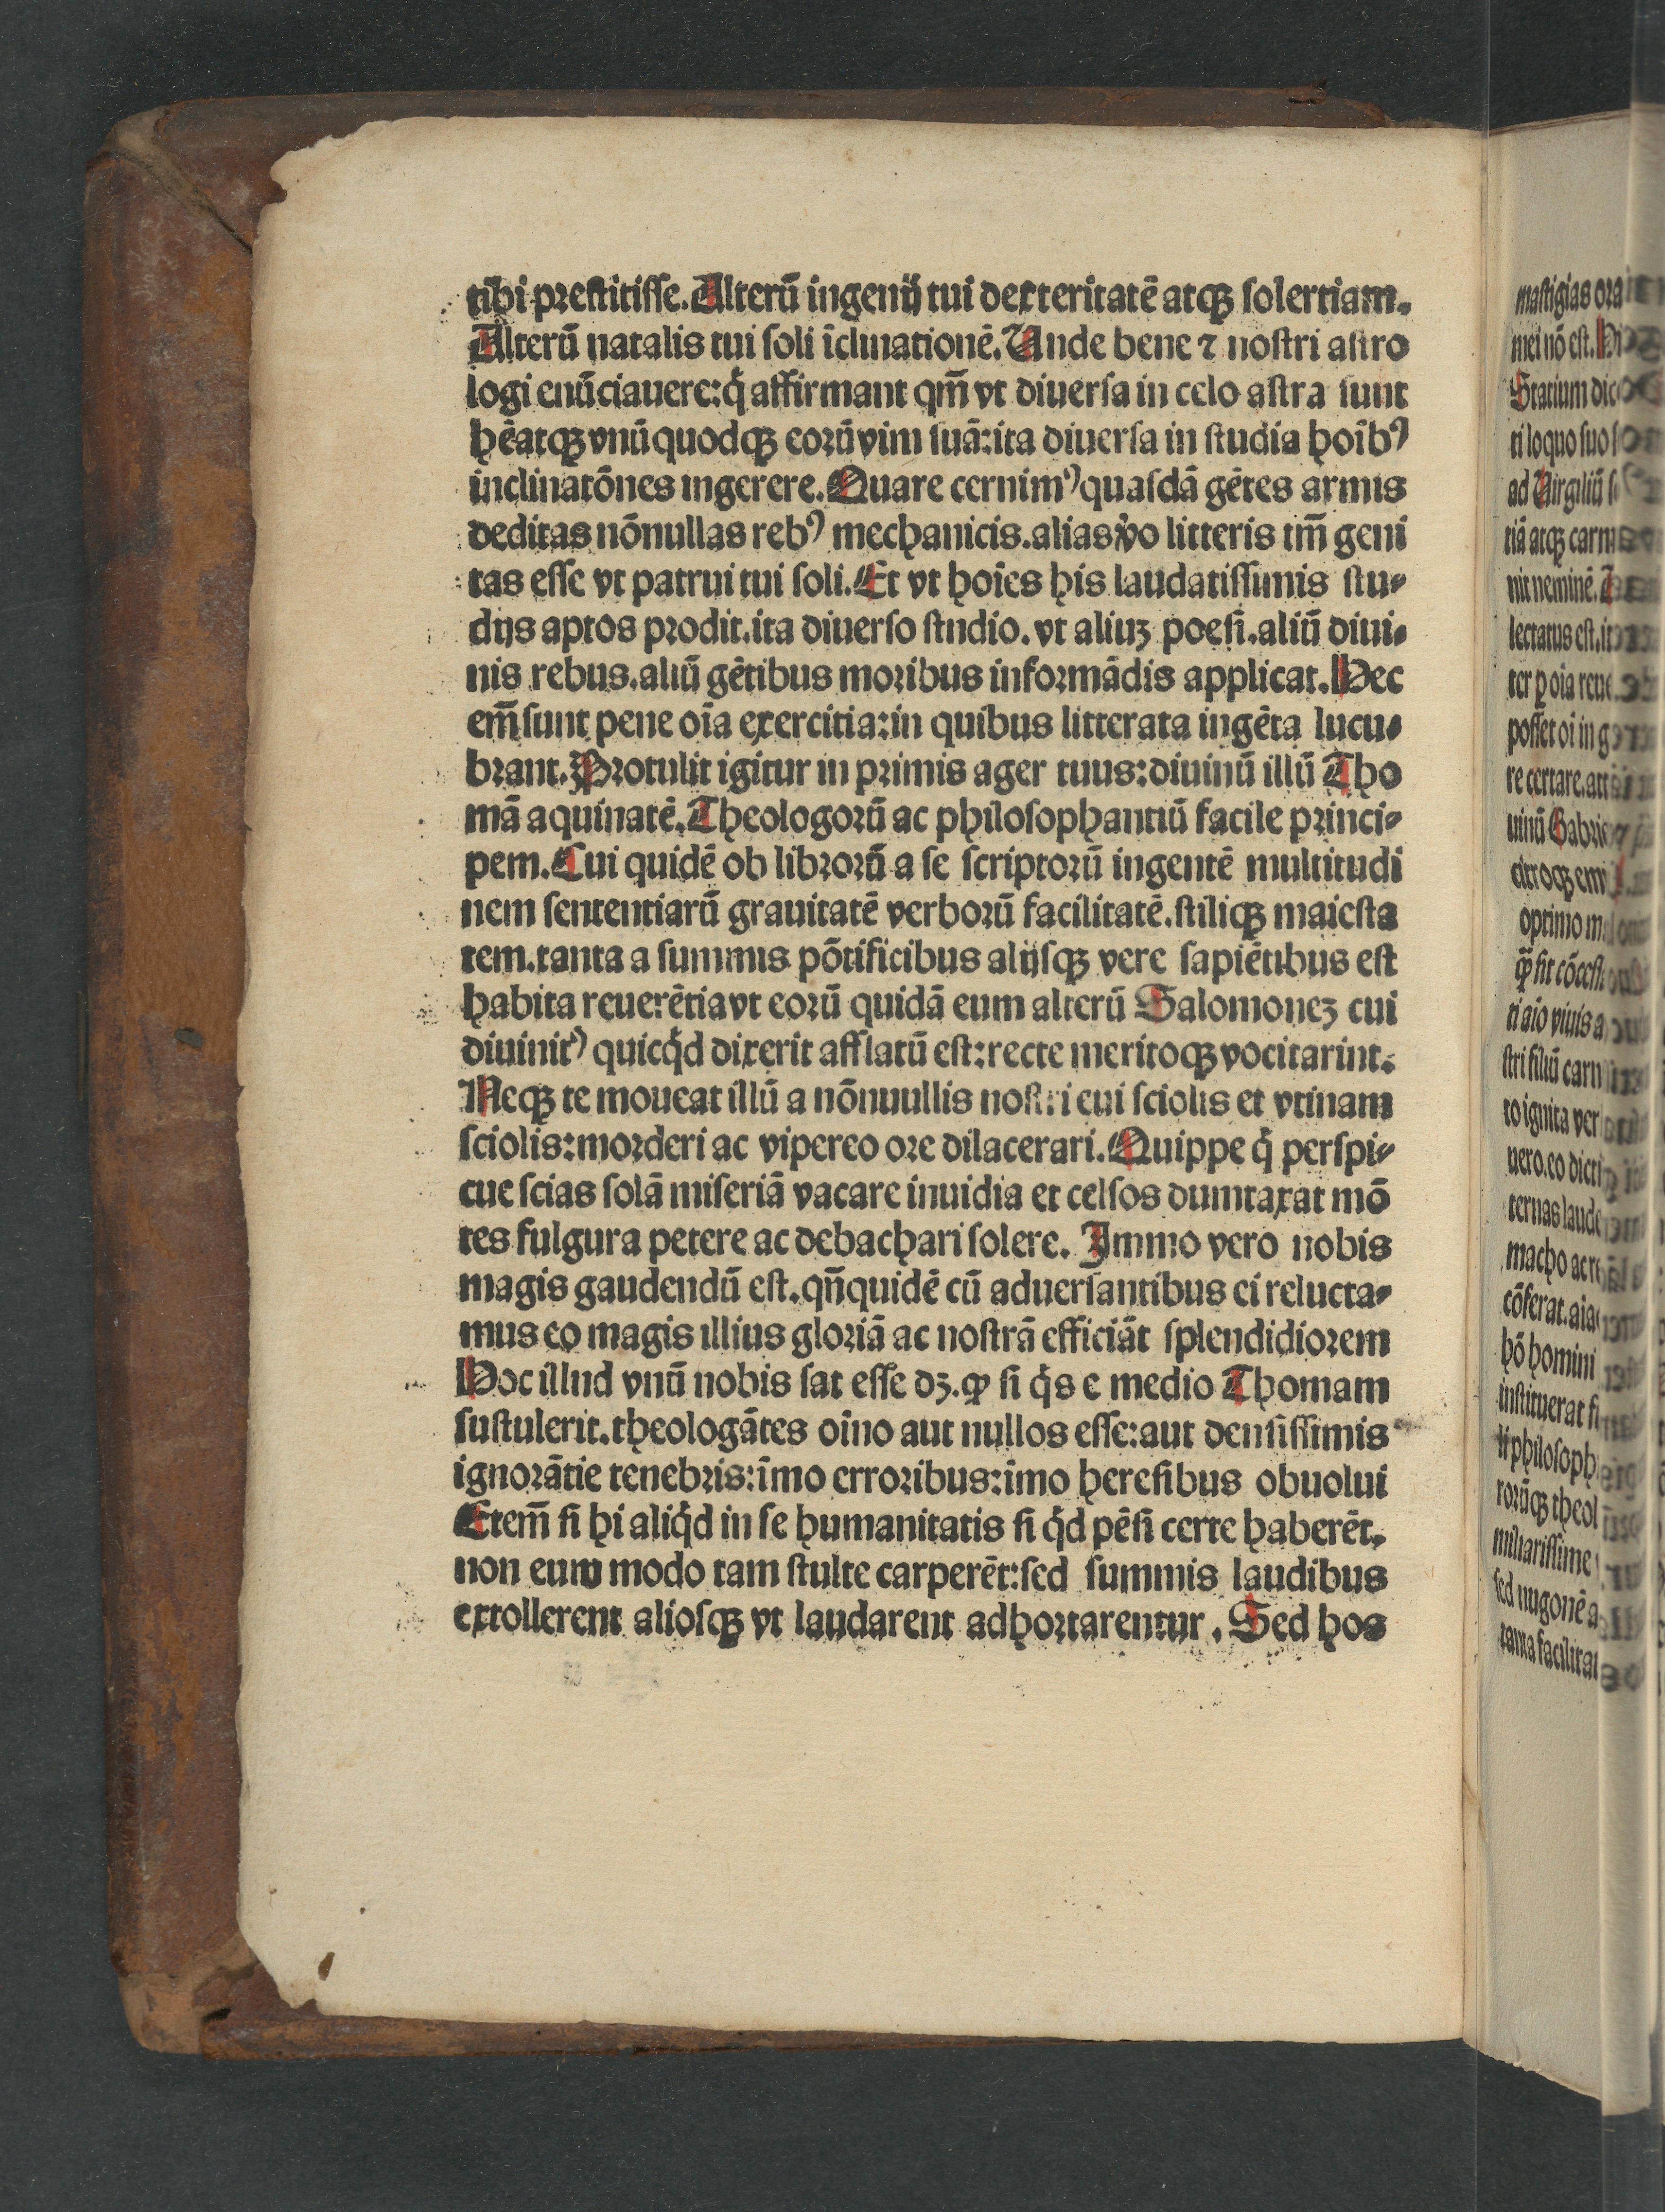 tibi prestitisse. Alterū ingenij tui dexteritatē atqꝫ solertiam.
Alterū natalis tui soli īclinationē. Unde bene ⁊ nostri astro
logi enūciauere: q̇ affirmant qm̄ vt diuersa in celo astra sunt
hēatqꝫ vnū quodqꝫ eorū vim suā: ita diuersa in studia hoībꝰ
inclinatōnes ingerere. Quare cernimꝰ quasdā gētes armis
deditas nōnullas rebꝰ mechanicis. alias v̇o litteris tm̄ geni
tas esse vt patrui tui soli. Et vt hoīes his laudatissimis stu⸗
dijs aptos prodit. ita diuerso stndio. vt aliuꝫ poesi. aliū diui⸗
nis rebus. aliū gētibus moribus informādis applicat. Hec
em̄ sunt pene oīa exercitia: in quibus litterata ingēta lucu⸗
brant. Protulit igitur in primis ager tuus: diuinū illū Tho
mā aquinatē. Theologorū ac philosophantiū facile princi⸗
pem. Cui quidē ob librorū a se scriptorū ingentē multitudi
nem sententiarū grauitatē verborū facilitatē. stiliqꝫ maiesta
tem. tanta a summis pōtificibus alijsqꝫ vere sapiētibus est
habita reuerētia vt eorū quidā eum alterū Salomoneꝫ cui
diuinitꝰ quicq̇d dixerit afflatū est: recte meritoqꝫ vocitarint.
Neqꝫ te moueat illū a nōnuullis nostri eui sciolis et vtinam
sciolis: morderi ac vipereo ore dilacerari. Quippe q̇ perspi⸗
cue scias solā miseriā vacare inuidia et celsos dumtaxat mō
tes fulgura petere ac debachari solere. Immo vero nobis
magis gaudendū est. qn̄quidē cū aduersantibus ei relucta⸗
mus eo magis illius gloriā ac nostrā efficiāt splendidiorem
Hoc illnd vnū nobis sat esse dꝫ. ꝙ si q̇s e medio Thomam
sustulerit. theologātes oīno aut nullos esse: aut densissimis
ignorātie tenebris: īmo erroribus: īmo heresibus obuolui
Etem̄ si hi aliq̇d in se humanitatis si q̇d pēsi certe haberēt.
non eum modo tam stulte carperēt: sed summis laudibus
extollerent aliosqꝫ vt laudarent adhortarentur. Sed hos